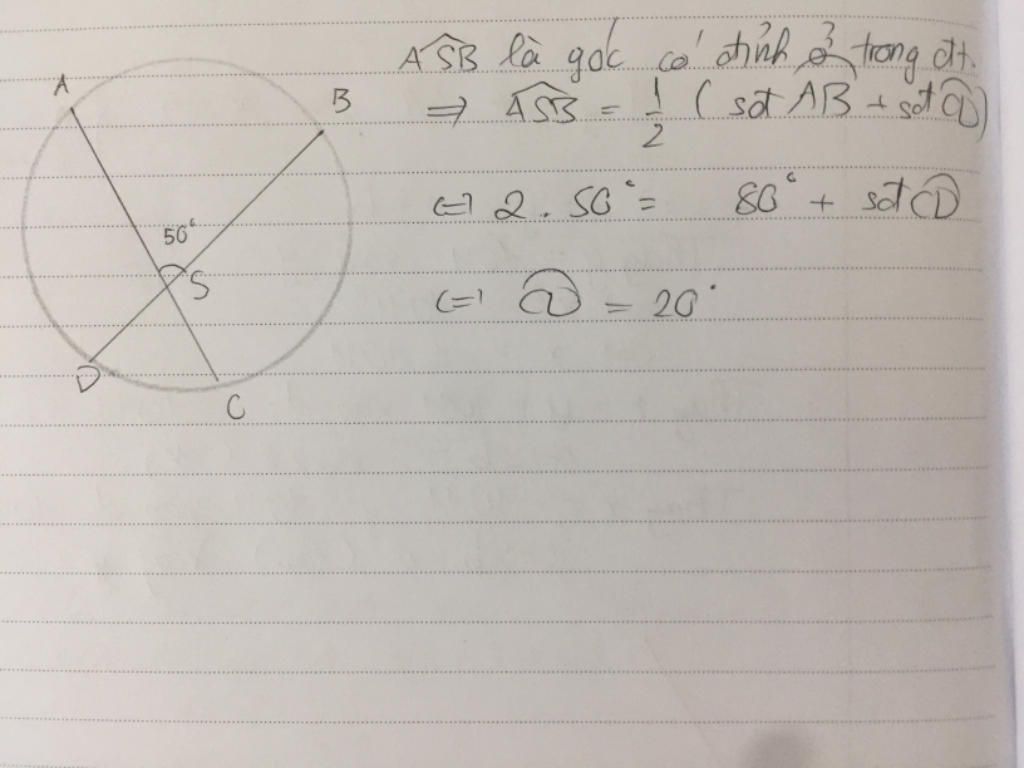 A
B
50°
S
D
C
ASB là góc có đỉnh ở trong đt.
⇒ ASB = 1/2 (sđ AB + sđ CD)
⇔ 2 . 50° = 80° + sđ CD
⇔ CD = 20°